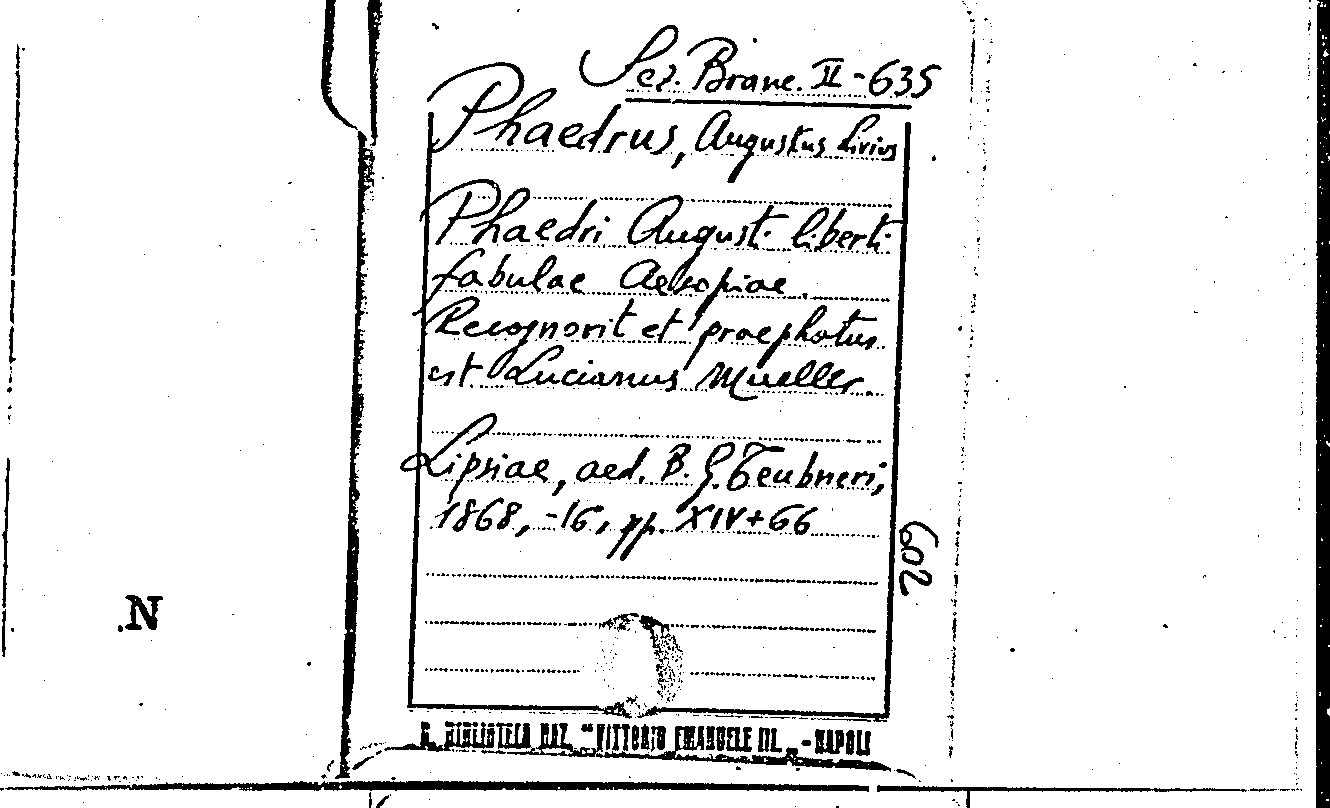 Sez. Branc. II-635
Phaedrus, Augustus Livius
Phaedri August. liberti
fabulae Aesopiae.
Recognovit et praephatus
est Lucianus Mueller.
Lipsiae, aed. B. G. Teubneri,
1868, -16, pp. XIV+66
602
N
R. BIBLIOTECA NAZ. "VITTORIO EMANUELE III." - NAPOLI